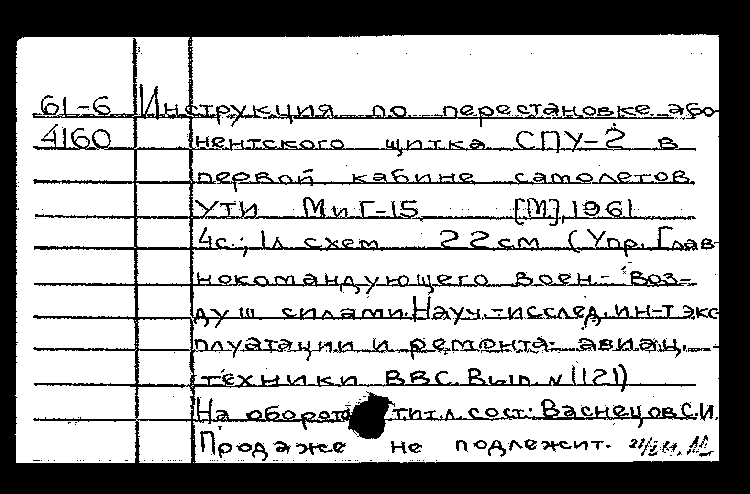 61-6 Инструкция по перестановке або-
4160 нентского щитка СПУ-2 в
первой кабине самолетов
УТИ МиГ-15 [М], 1961
4с.; 1л схем 22см (Упр. Глав-
нокомандующего Воен.- Воз-
душ силами. Науч.-исслед. ин-т экс
плуатации и ремонта авиац.
техники ВВС. Вып. N 1121)
На обороте тит. л. сост: Васнецов С.И.
Продаже не подлежит.